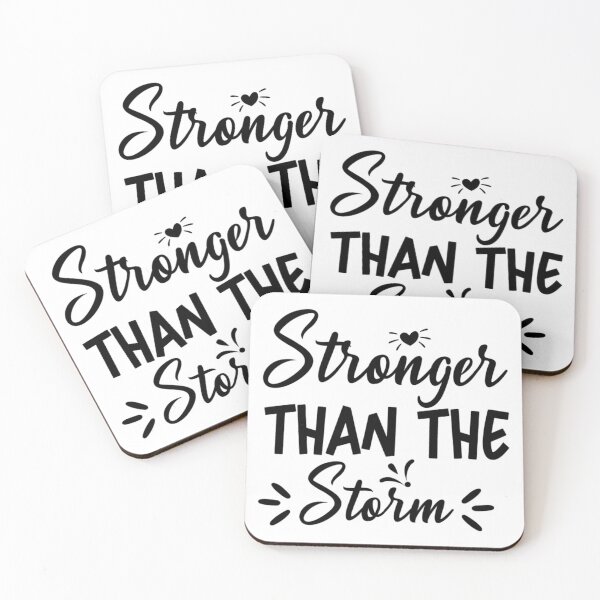 Stronger
Stronger
THAN THE
Stronger
THAN THE
Stronger
THAN THE
Storm